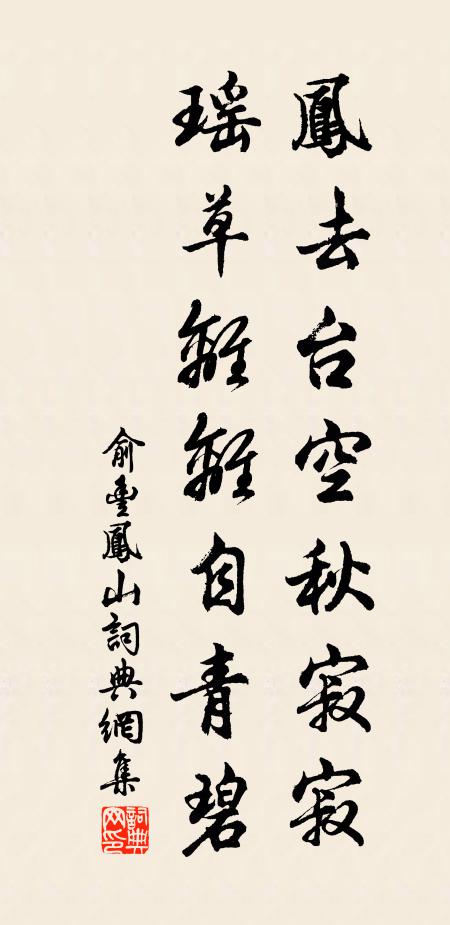 鳳去台空秋寂寂
瑶草離離自青碧
俞豐鳳山詞典網集
詞典网印